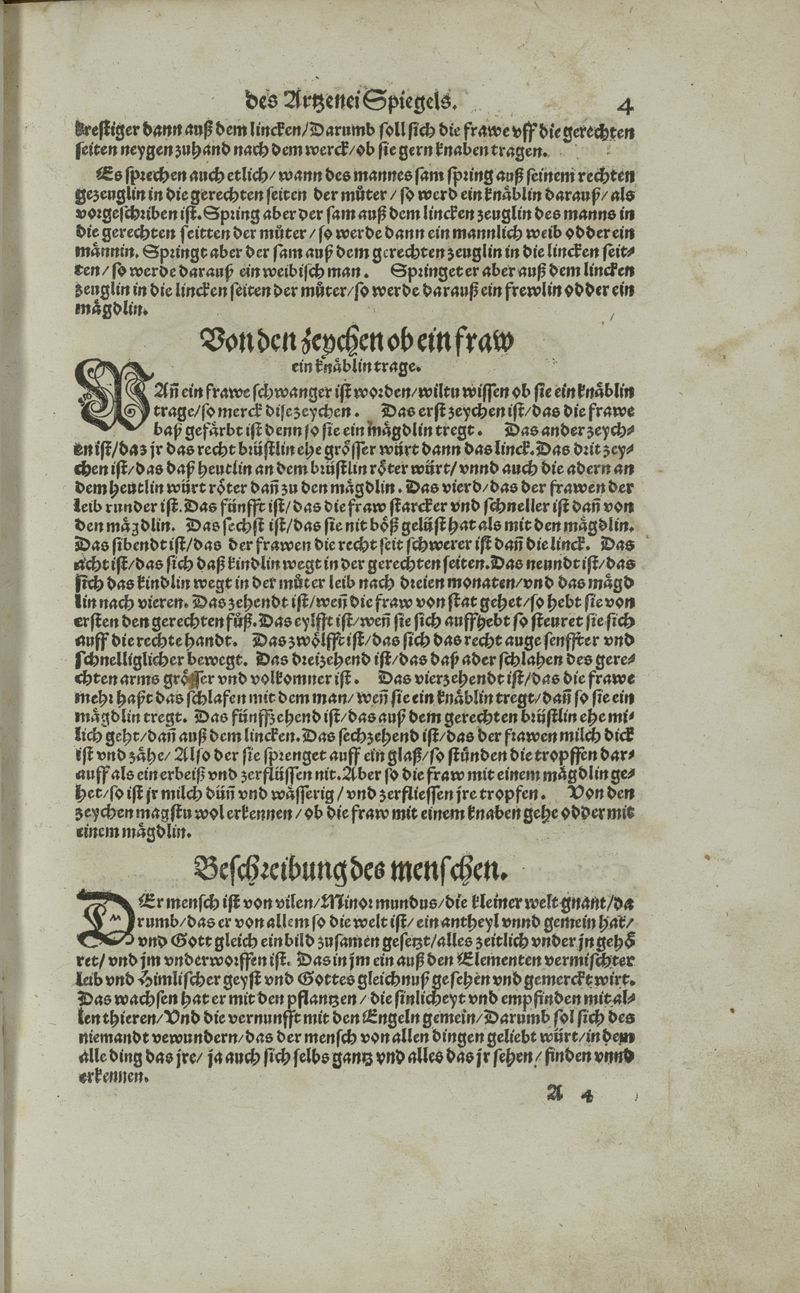 des Artzenei Spiegels. 4
krefftiger dann auß dem lincken/Darumb soll sich die frawe vff die gerechten
seiten neygen zuhand nach dem werck/ob sie gern knaben tragen.
Es sprechen auch etlich/wann des mannes sam spring auß seinem rechten
gezeuglin in die gerechten seiten der můter/so werd ein knäblin darauß/als
vorgeschriben ist. Spring aber der sam auß dem lincken zeuglin des manns in
die gerechten seitten der můter/so werde dann ein mannlich weib odder ein
männin. Springt aber der sam auß dem gerechten zeuglin in die lincken seit⸗
ten/so werde darauß ein weibisch man. Springet er aber auß dem lincken
zeuglin in die lincken seiten der můter/so werde darauß ein frewlin odder ein
mägdlin.
Von den zeychen ob ein fraw
ein knäblin trage.
WAñ ein frawe schwanger ist worden/wiltu wissen ob sie ein knäblin
trage/so merck dise zeychen. Das erst zeychen ist/das die frawe
baß gefärbt ist denn so sie ein mägdlin tregt. Das ander zeych⸗
en ist/daz jr das recht brüstlin ehe grösser würt dann das linck. Das drit zey⸗
chen ist/das daß heutlin an dem brüstlin röter würt/vnnd auch die adern an
dem heutlin würt röter dañ zu den mägdlin. Das vierd/das der frawen der
leib runder ist. Das fünfft ist/das die fraw starcker vnd schneller ist dañ von
den mägdlin. Das sechst ist/das sie nit böß gelüst hat als mit den mägdlin.
Das sibendt ist/das der frawen die recht seit schwerer ist dañ die linck. Das
acht ist/das sich daß kindlin wegt in der gerechten seiten. Das neundt ist/das
sich das kindlin wegt in der můter leib nach dreien monaten/vnd das mägd
lin nach vieren. Das zehendt ist/weñ die fraw von stat gehet/so hebt sie von
ersten den gerechten fůß. Das eylfft ist/weñ sie sich auffhebt so steuret sie sich
auff die rechte handt. Das zwölfft ist/das sich das recht auge senffter vnd
schnelliglicher bewegt. Das dreizehend ist/das daß ader schlahen des gere⸗
chten arms grösser vnd volkomner ist. Das vierzehendt ist/das die frawe
mehr haßt das schlafen mit dem man/weñ sie ein knäblin tregt/dañ so sie ein
mägdlin tregt. Das fünffzehend ist/das auß dem gerechten brüstlin ehe mi⸗
lich geht/dañ auß dem lincken. Das sechzehend ist/das der frawen milch dick
ist vnd zähe/Also der sie sprenget auff ein glaß/so stünden die tropffen dar⸗
auff als ein erbeiß vnd zerflüssen nit. Aber so die fraw mit einem mägdlin ge⸗
het/so ist jr milch düñ vnd wässerig/vnd zerfliessen jre tropfen. Von den
zeychen magstu wol erkennen/ob die fraw mit einem knaben gehe odder mit
einem mägdlin.
Beschreibung des menschen.
DEr mensch ist von vilen/Minor mundus/die kleiner welt gnant/da
rumb/das er von allem so die welt ist/ein antheyl vnnd gemein hat/
vnd Gott gleich ein bild zusamen gesetzt/alles zeitlich vnder jn gehö
ret/vnd jm vnderworffen ist. Das in jm ein auß den Elementen vermischter
leib vnd Himlischer geyst vnd Gottes gleichnuß gesehen vnd gemerckt wirt.
Das wachsen hat er mit den pflantzen/die sinlicheyt vnd empfinden mit al⸗
len thieren/Vnd die vernunfft mit den Engeln gemein/Darumb sol sich des
niemandt vewundern/das der mensch von allen dingen geliebt würt/in dem
alle ding das jre/ja auch sich selbs gantz vnd alles das jr sehen/finden vnnd
erkennen.
A 4